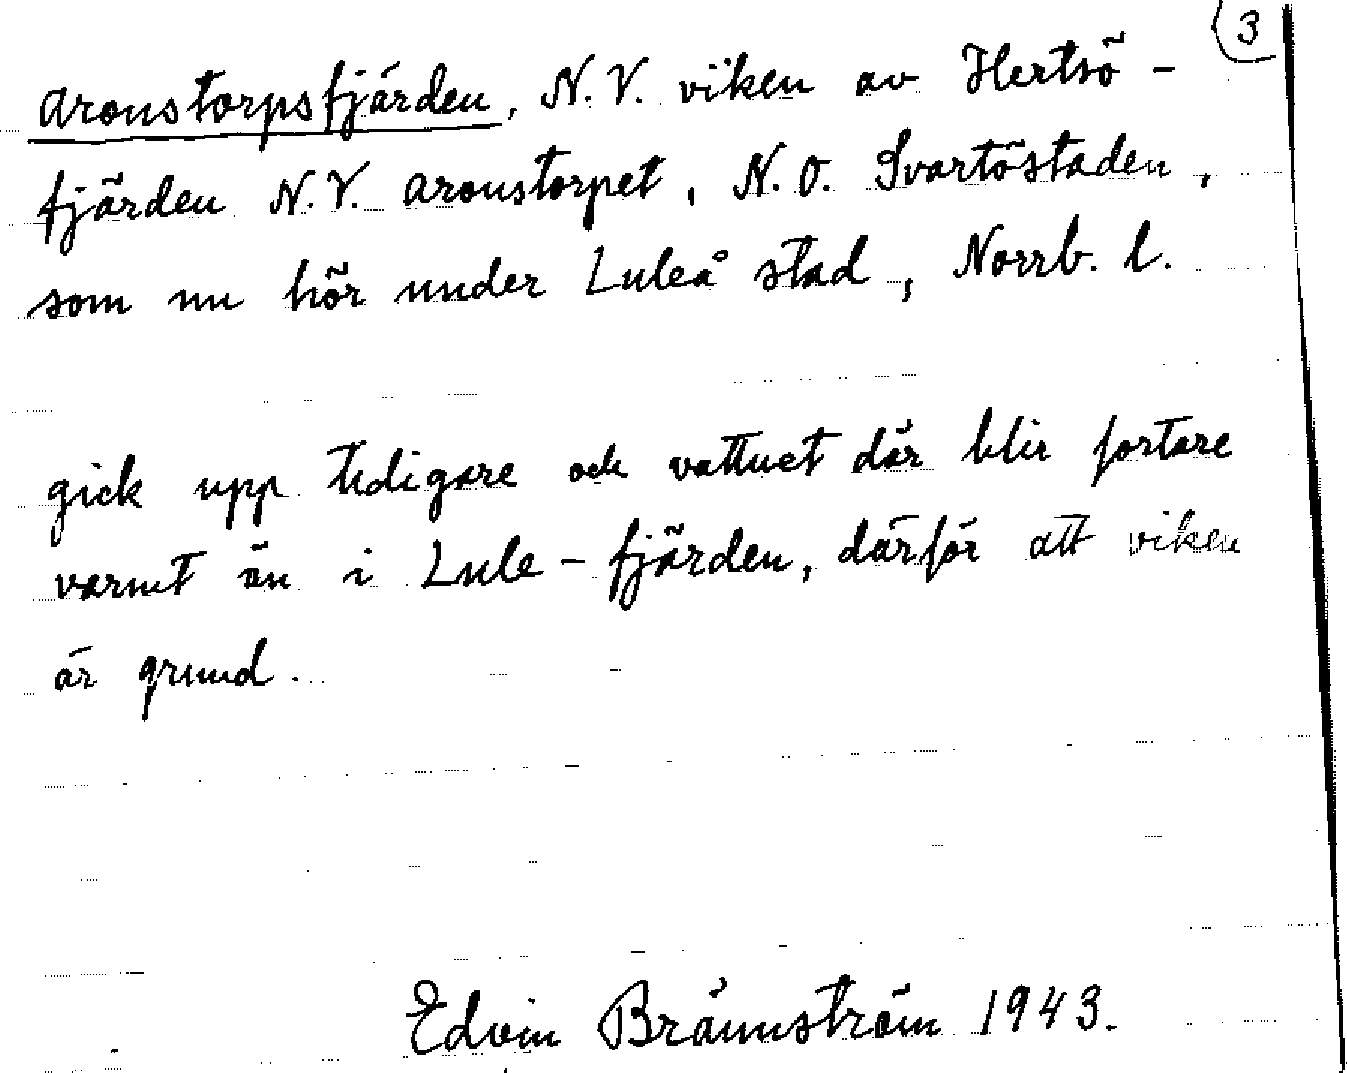 3
Aronstorpsfjärden, N.V. viken av Hertsö-
fjärden N.V. Aronstorpet, N.O. Svartöstaden,
som nu hör under Luleå stad, Norrb. l.
gick upp tidigare och vattnet där blir fortare
varmt än i Lule-fjärden, därför att viken
är grund.
Edvin Brännström 1943.